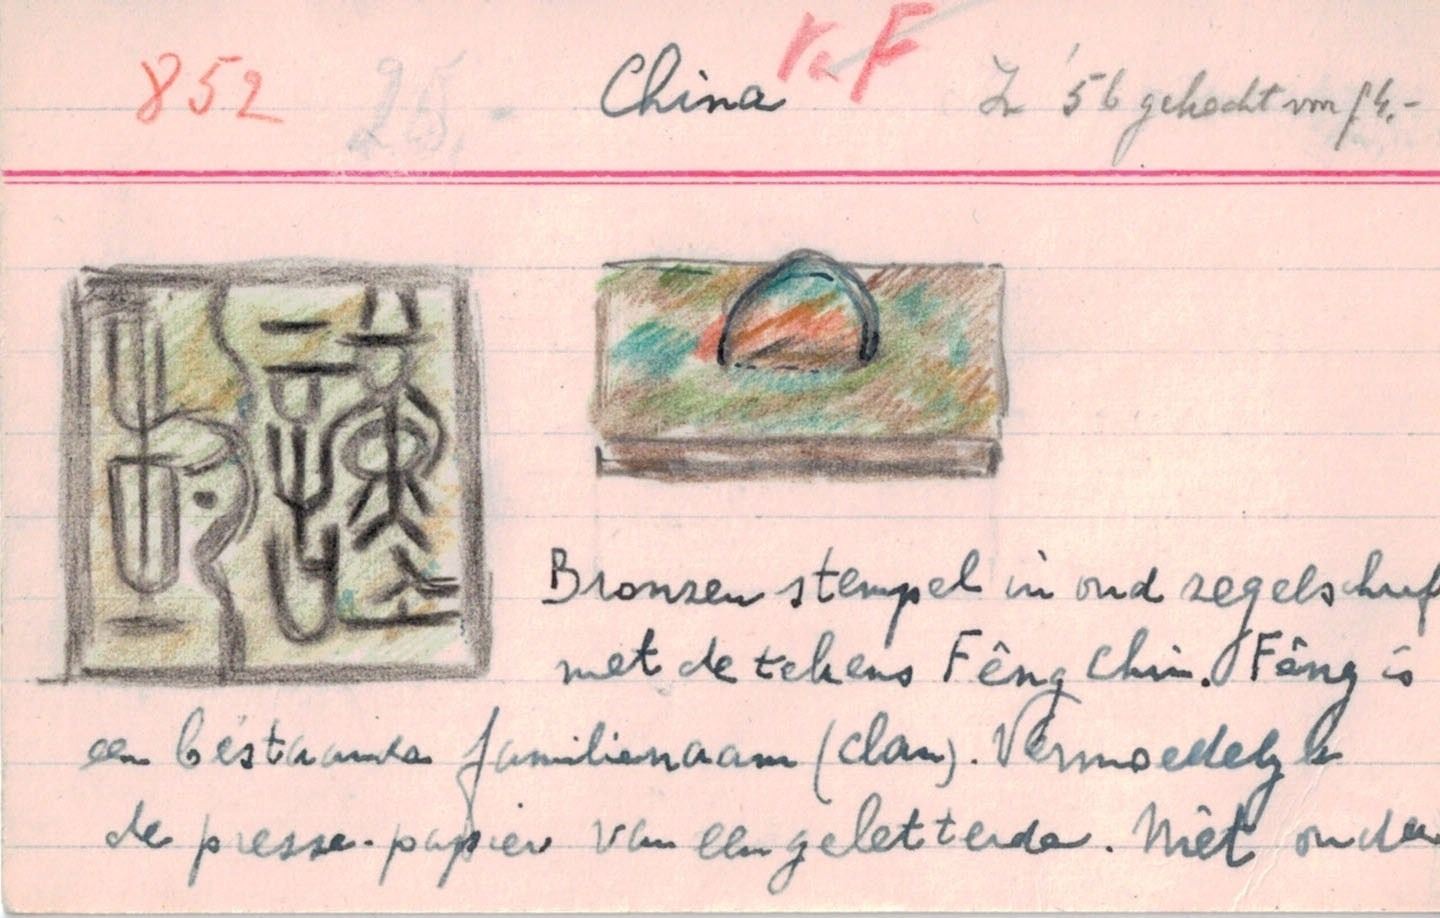 852 25,- China V.F In '56 gekocht voor f 4.-
Bronzen stempel in oud zegelschrif
met de tekens Fêng Chin. Fêng is
een bestaande familienaam (clan). Vermoedelijk
de presse-papier van een geletterde. Niet ouder